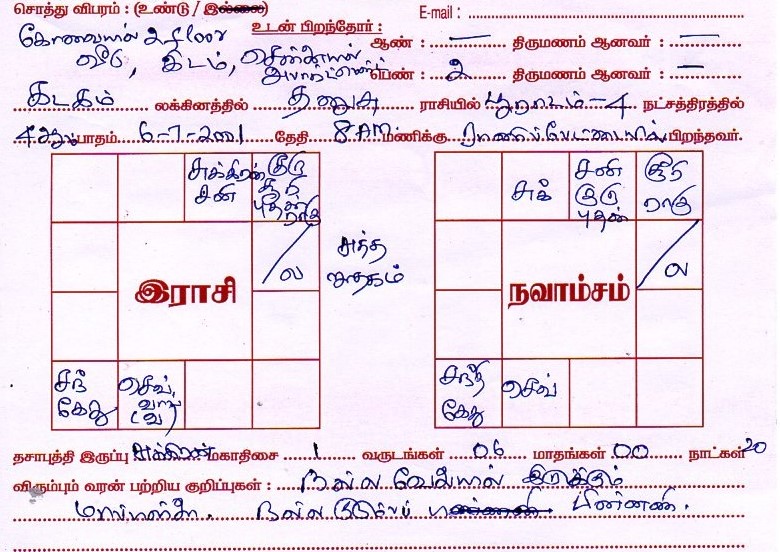 சொத்து விபரம் : (உண்டு / இல்லை) E-mail :
உடன் பிறந்தோர் :
கோவையில் 2 floor ஆண் : — திருமணம் ஆனவர் : —
வீடு, இடம், சென்னையில் பெண் : 2 திருமணம் ஆனவர் : —
கடகம் லக்கினத்தில் தனுசு ராசியில் பூராடம் - 4 நட்சத்திரத்தில்
4ஆம் பாதம் 6-7-2001 தேதி 8 AM மணிக்கு ராணிப்பேட்டையில் பிறந்தவர்.
சுக்கிரன் குரு
சனி சூரி
புதன்
ராகு
ல
சுத்த
ஜாதகம்
இராசி
சந் செவ்
கேது (வ)
சுக் சனி சூரி
குரு ராகு
புதன்
ல
நவாம்சம்
சந் செவ்
கேது
தசாபுத்தி இருப்பு சுக்கிரன் மகாதிசை 1 வருடங்கள் 06 மாதங்கள் 00 நாட்கள் 20
விரும்பும் வரன் பற்றிய குறிப்புகள் : நல்ல வேலையில் இருக்கும்
மாப்பிள்ளை. நல்ல குடும்ப பின்னணி.